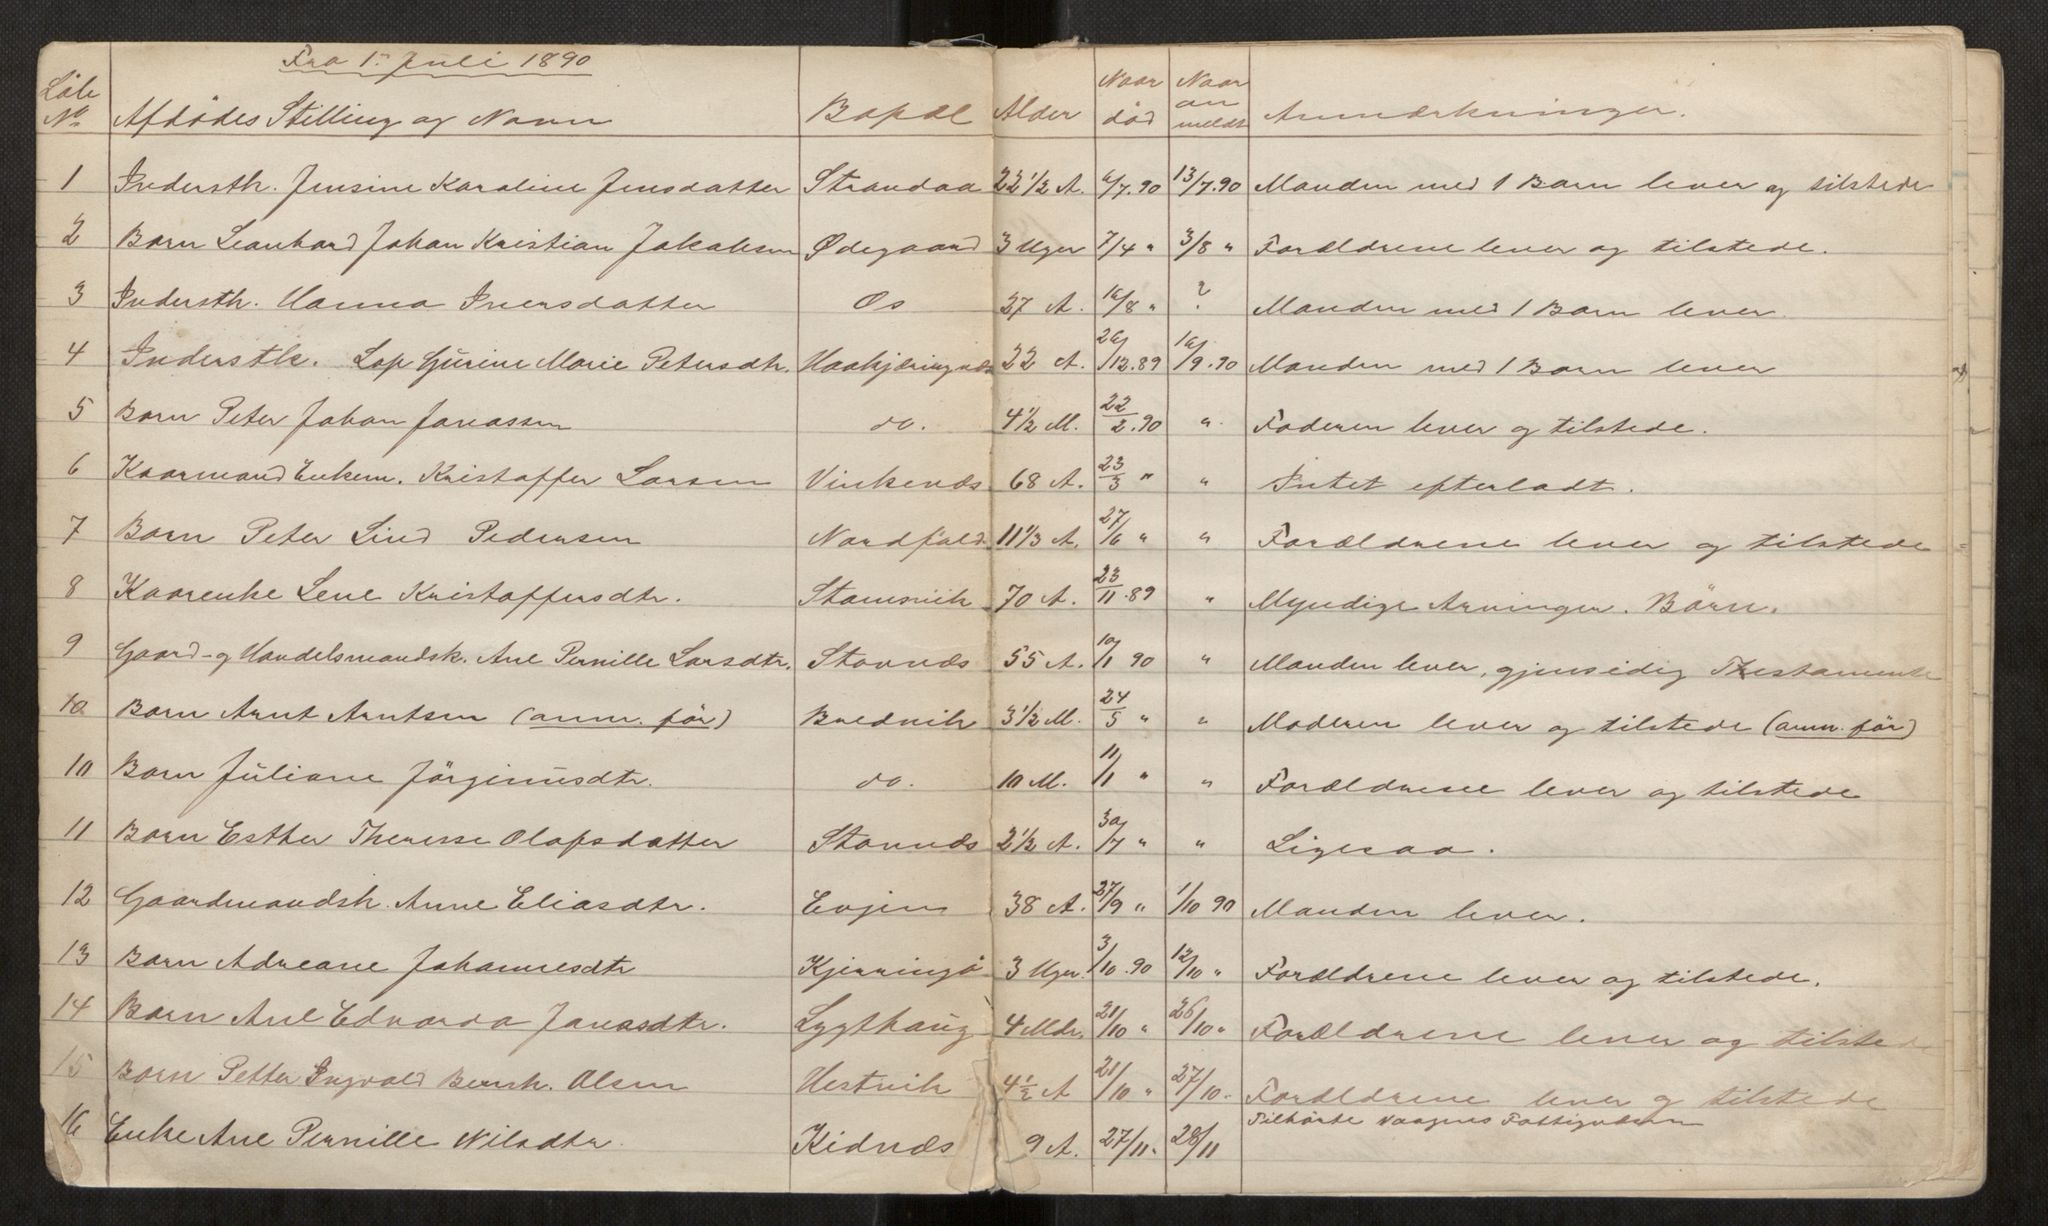 Fra 1. Juli 1890
Löbe No Afdødes Stilling og Navn Bopæl Alder Naar död Naar anmeldt Anmærkninger.
1 Indersth. Jensine Karoline Jensdatter Strandaa 22 1/2 A. 6/7.90 13/7.90 Manden med 1 Barn lever og tilstede
2 Barn Leonhard Johan Kristian Jakobsen Ødegaard 3 Uger 7/4 " 3/8 " Forældrene lever og tilstede.
3 Indersth. Hanna Iversdatter Os 27 A. 10/8 " ? Manden med 1 Barn lever.
4 Indersth. Lap Gurine Marie Petersdtr. Haakjæringnæs 22 A. 20/12.89 10/9.90 Manden med 1 Barn lever
5 Barn Peter Johan Jonassen do. 4 1/2 M. 22/2.90 " Faderen lever og tilstede.
6 Kaarmand Enkem. Kristoffer Larsen Vinkenæs 68 A. 23/3 " " Intet efterladt.
7 Barn Peter Lind Pedersen Nordfold 11 1/3 A. 27/6 " " Forældrene lever og tilstede
8 Kaarenke Lene Kristoffersdtr. Stamsvik 70 A. 23/11.89 " Myndige Arvinger. Börn.
9 Gaard- og Handelsmandsk. Ane Pernille Larsdtr. Stavnæs 55 A. 10/1 90 " Manden lever, gjensidig Testamente
10 Barn Arnt Arntsen (anm. för) Brednik 3 1/2 M. 24/5 " " Moderen lever og tilstede (anm. för)
10 Barn Juliane Jörginusdtr. do. 10 M. 11/1 " " Forældrene lever og tilstede
11 Barn Esther Therese Olafsdatter Stavnæs 2 1/2 A. 30/7 " " Ligesaa.
12 Gaardmandsk. Anne Eliasdtr. Evjen 38 A. 27/9 " 1/10 90 Manden lever.
13 Barn Adreane Johannesdtr Kjerringö 3 Uger 3/10.90 12/10 " Forældrene lever og tilstede.
14 Barn Ane Edvarda Jonasdtr. Lygthaug 4 Mdr. 21/10 " 26/10 " Forældrene lever og tilstede
15 Barn Petter Ingvald Bernh. Olsen Hestvik 4 1/2 A 21/10 " 27/10. Forældrene lever og tilstede
16 Enke Ane Pernille Nilsdtr. Kidnæs 9 A. 27/11. 28/11 Tilhörte Vaagens Fattigvæsen